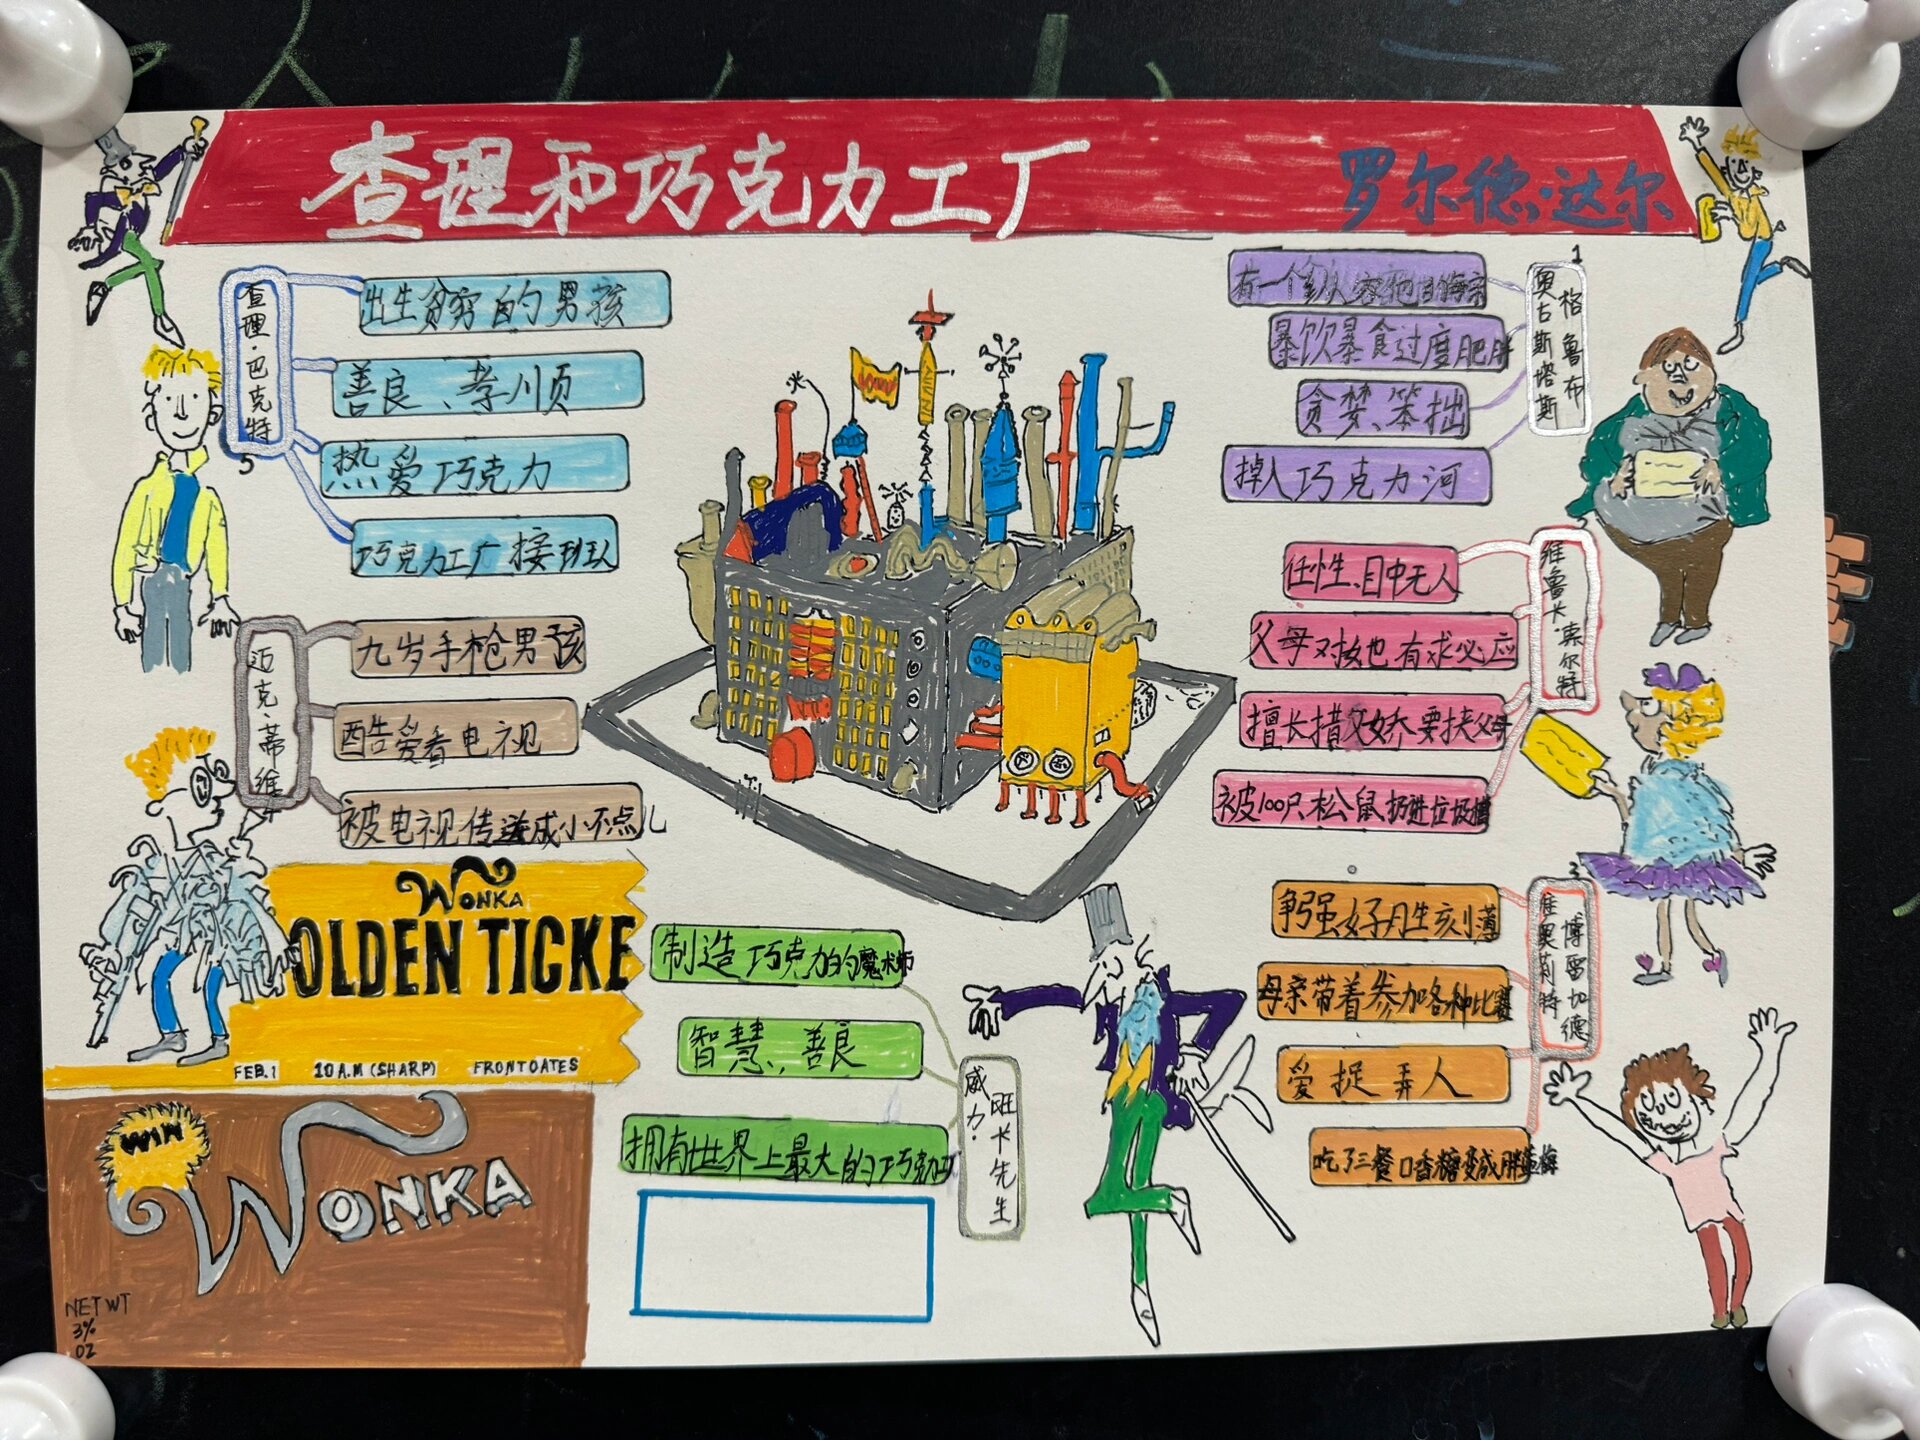 查理和巧克力工厂
罗尔德·达尔
查理·巴克特
5
出生贫穷的男孩
善良、孝顺
热爱巧克力
巧克力工厂接班人
迈克·蒂维
4
九岁手枪男孩
酷爱看电视
被电视传送成小不点儿
WONKA
OLDEN TICKE
FEB.1 10A.M(SHARP) FRONTOATES
WIN
WONKA
NETWT
3%
OZ
WONK
制造巧克力的魔术师
智慧、善良
拥有世界上最大的巧克力工厂
威力·
旺卡先生
1
奥古斯塔斯
格鲁布
有一个纵容他的母亲
暴饮暴食过度肥胖
贪婪、笨拙
掉入巧克力河
2
维鲁卡·索尔特
任性、目中无人
父母对她有求必应
擅长撒娇要挟父母
被100只松鼠扔进垃圾槽
3
维奥莉特
博雷加德
争强好胜生刻薄
母亲带着参加各种比赛
爱捉弄人
吃了三餐口香糖变成胖蓝莓